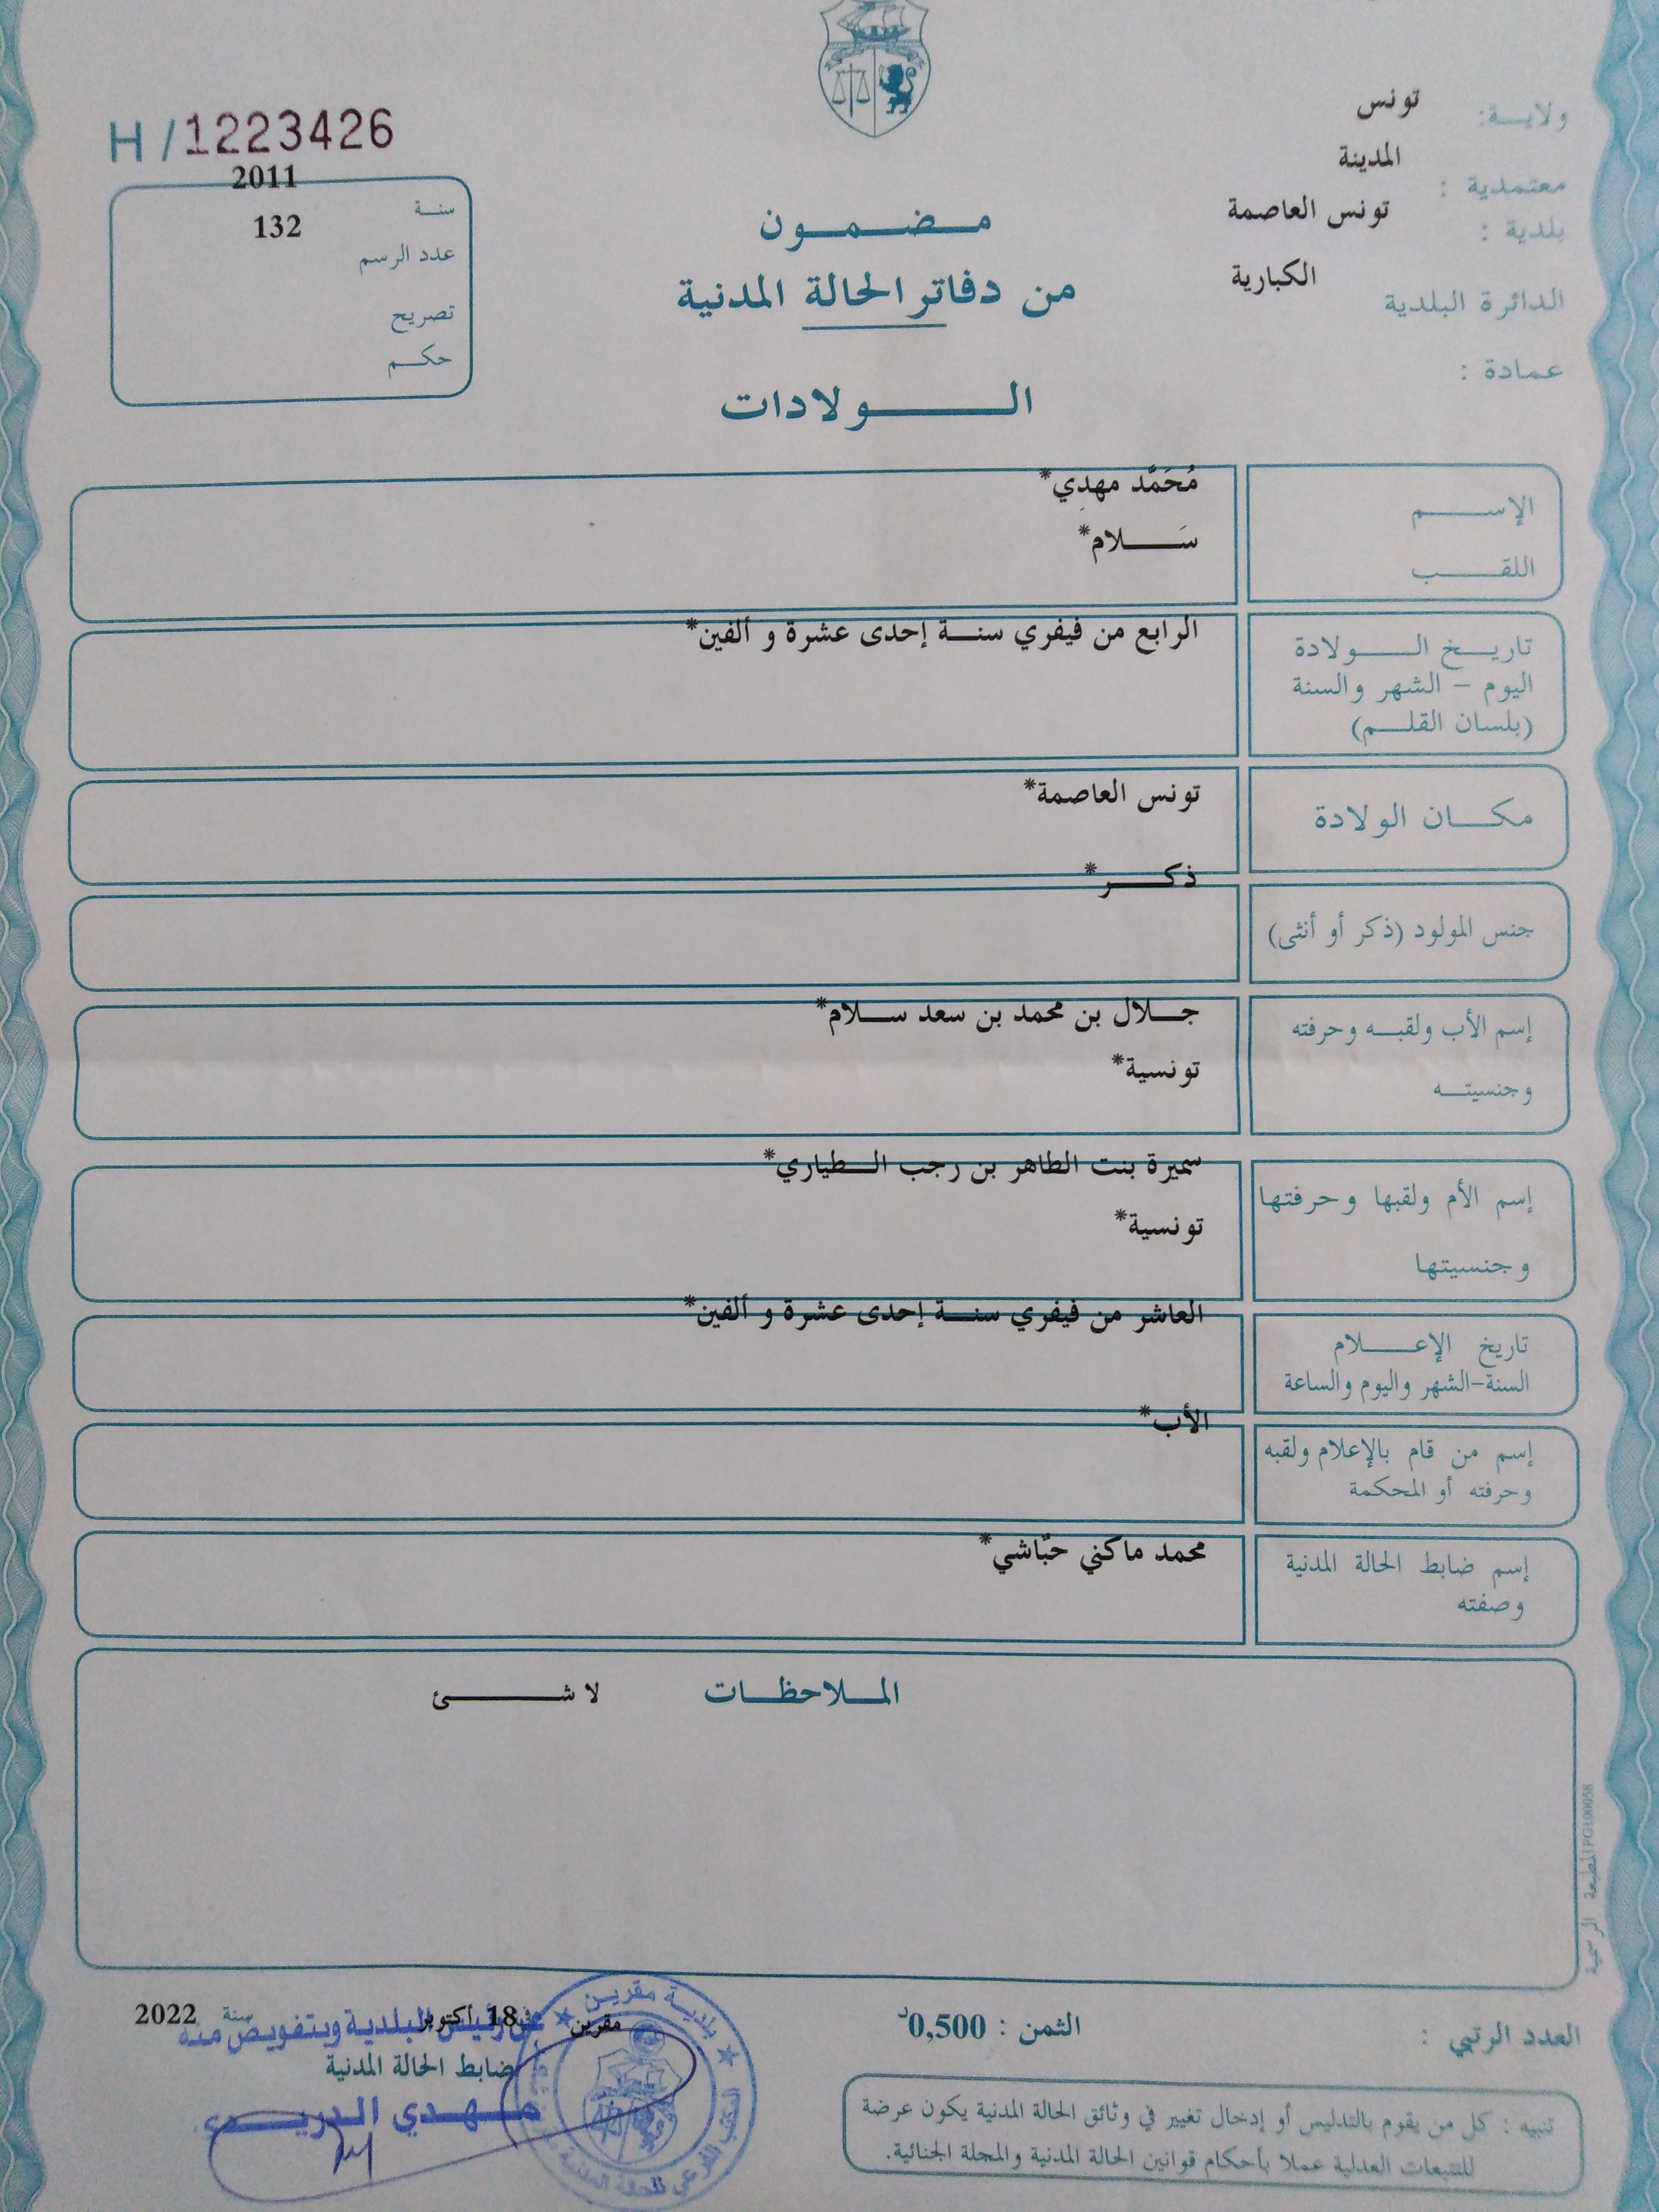 ولايـــة: تونس
معتمدية : المدينة
بلدية : تونس العاصمة
الدائرة البلدية الكبارية
عمادة :
H/1223426
سنة 2011
عدد الرسم 132
تصريح
حكم
مضمون
من دفاتر الحالة المدنية
الولادات
الإسم مُحَمَّد مهدِي*
اللقب سَلام*
تاريخ الولادة الرابع من فيفري سنة إحدى عشرة و ألفين*
اليوم – الشهر والسنة
(بلسان القلم)
مكان الولادة تونس العاصمة*
جنس المولود (ذكر أو أنثى) ذكر*
إسم الأب ولقبه وحرفته جلال بن محمد بن سعد سلام*
وجنسيته تونسية*
إسم الأم ولقبها وحرفتها سميرة بنت الطاهر بن رجب الطياري*
وجنسيتها تونسية*
تاريخ الإعلام العاشر من فيفري سنة إحدى عشرة و ألفين*
السنة-الشهر واليوم والساعة
إسم من قام بالإعلام ولقبه الأب*
وحرفته أو المحكمة
إسم ضابط الحالة المدنية محمد ماكني حبّاشي*
وصفته
الملاحظات لا شئ
المطبعة الرسمية PG100058
العدد الرتبي :
الثمن : 0,500د
مقرين في 18 أكتوبر سنة 2022
عن رئيس البلدية وبتفويض منه
ضابط الحالة المدنية
مهدي الدريدي
بلدية مقرين
تنبيه : كل من يقوم بالتدليس أو إدخال تغيير في وثائق الحالة المدنية يكون عرضة
للتتبعات العدلية عملا بأحكام قوانين الحالة المدنية والمجلة الجنائية.